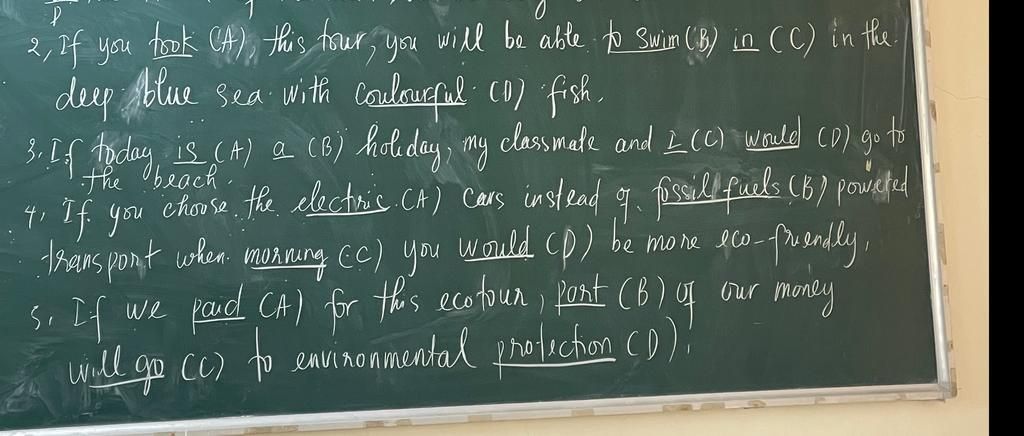 D
2, If you took (A), this tour, you will be able to swim (B) in (C) in the
deep blue sea with coulourful (D) fish.
3. If today is (A) a (B) holiday, my classmate and I (C) would (D) go to
the beach.
4, If you choose the electric (A) cars instead of fossil fuels (B) powered
transport when morning (C) you would (D) be more eco-friendly,
5. If we paid (A) for this ecotour, part (B) of our money
will go (C) to environmental protection (D).